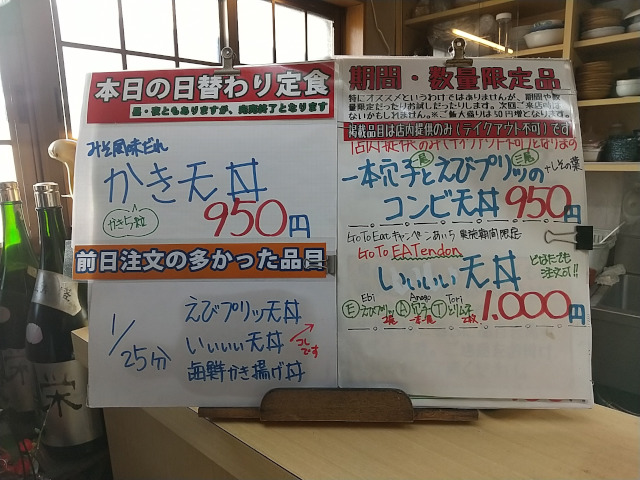 本日の日替わり定食
昼・夜ともありますが、売切終了となります
みそ風味だれ
かき天丼
かき5粒
950円
前日注文の多かった品目
1/25分
えびプリッ天丼
いいいい天丼
海鮮かき揚げ丼
期間・数量限定品
特にオススメというわけではありませんが、期間や数
量限定だったりお試しだったりします。次回ご来店時は
ないかもしれません。※ご飯大盛りは50円増となります。
掲載品目は店内提供のみ(テイクアウト不可)です
一尾 三尾
一本穴子とえびプリッの
+しその葉
コンビ天丼 950円
Go To Eatキャンペーンあいち 実施期間限定
Go To EATendon
いいいい天丼
どなたでも
注文可!!
Ebi Anago Tori
1.000円